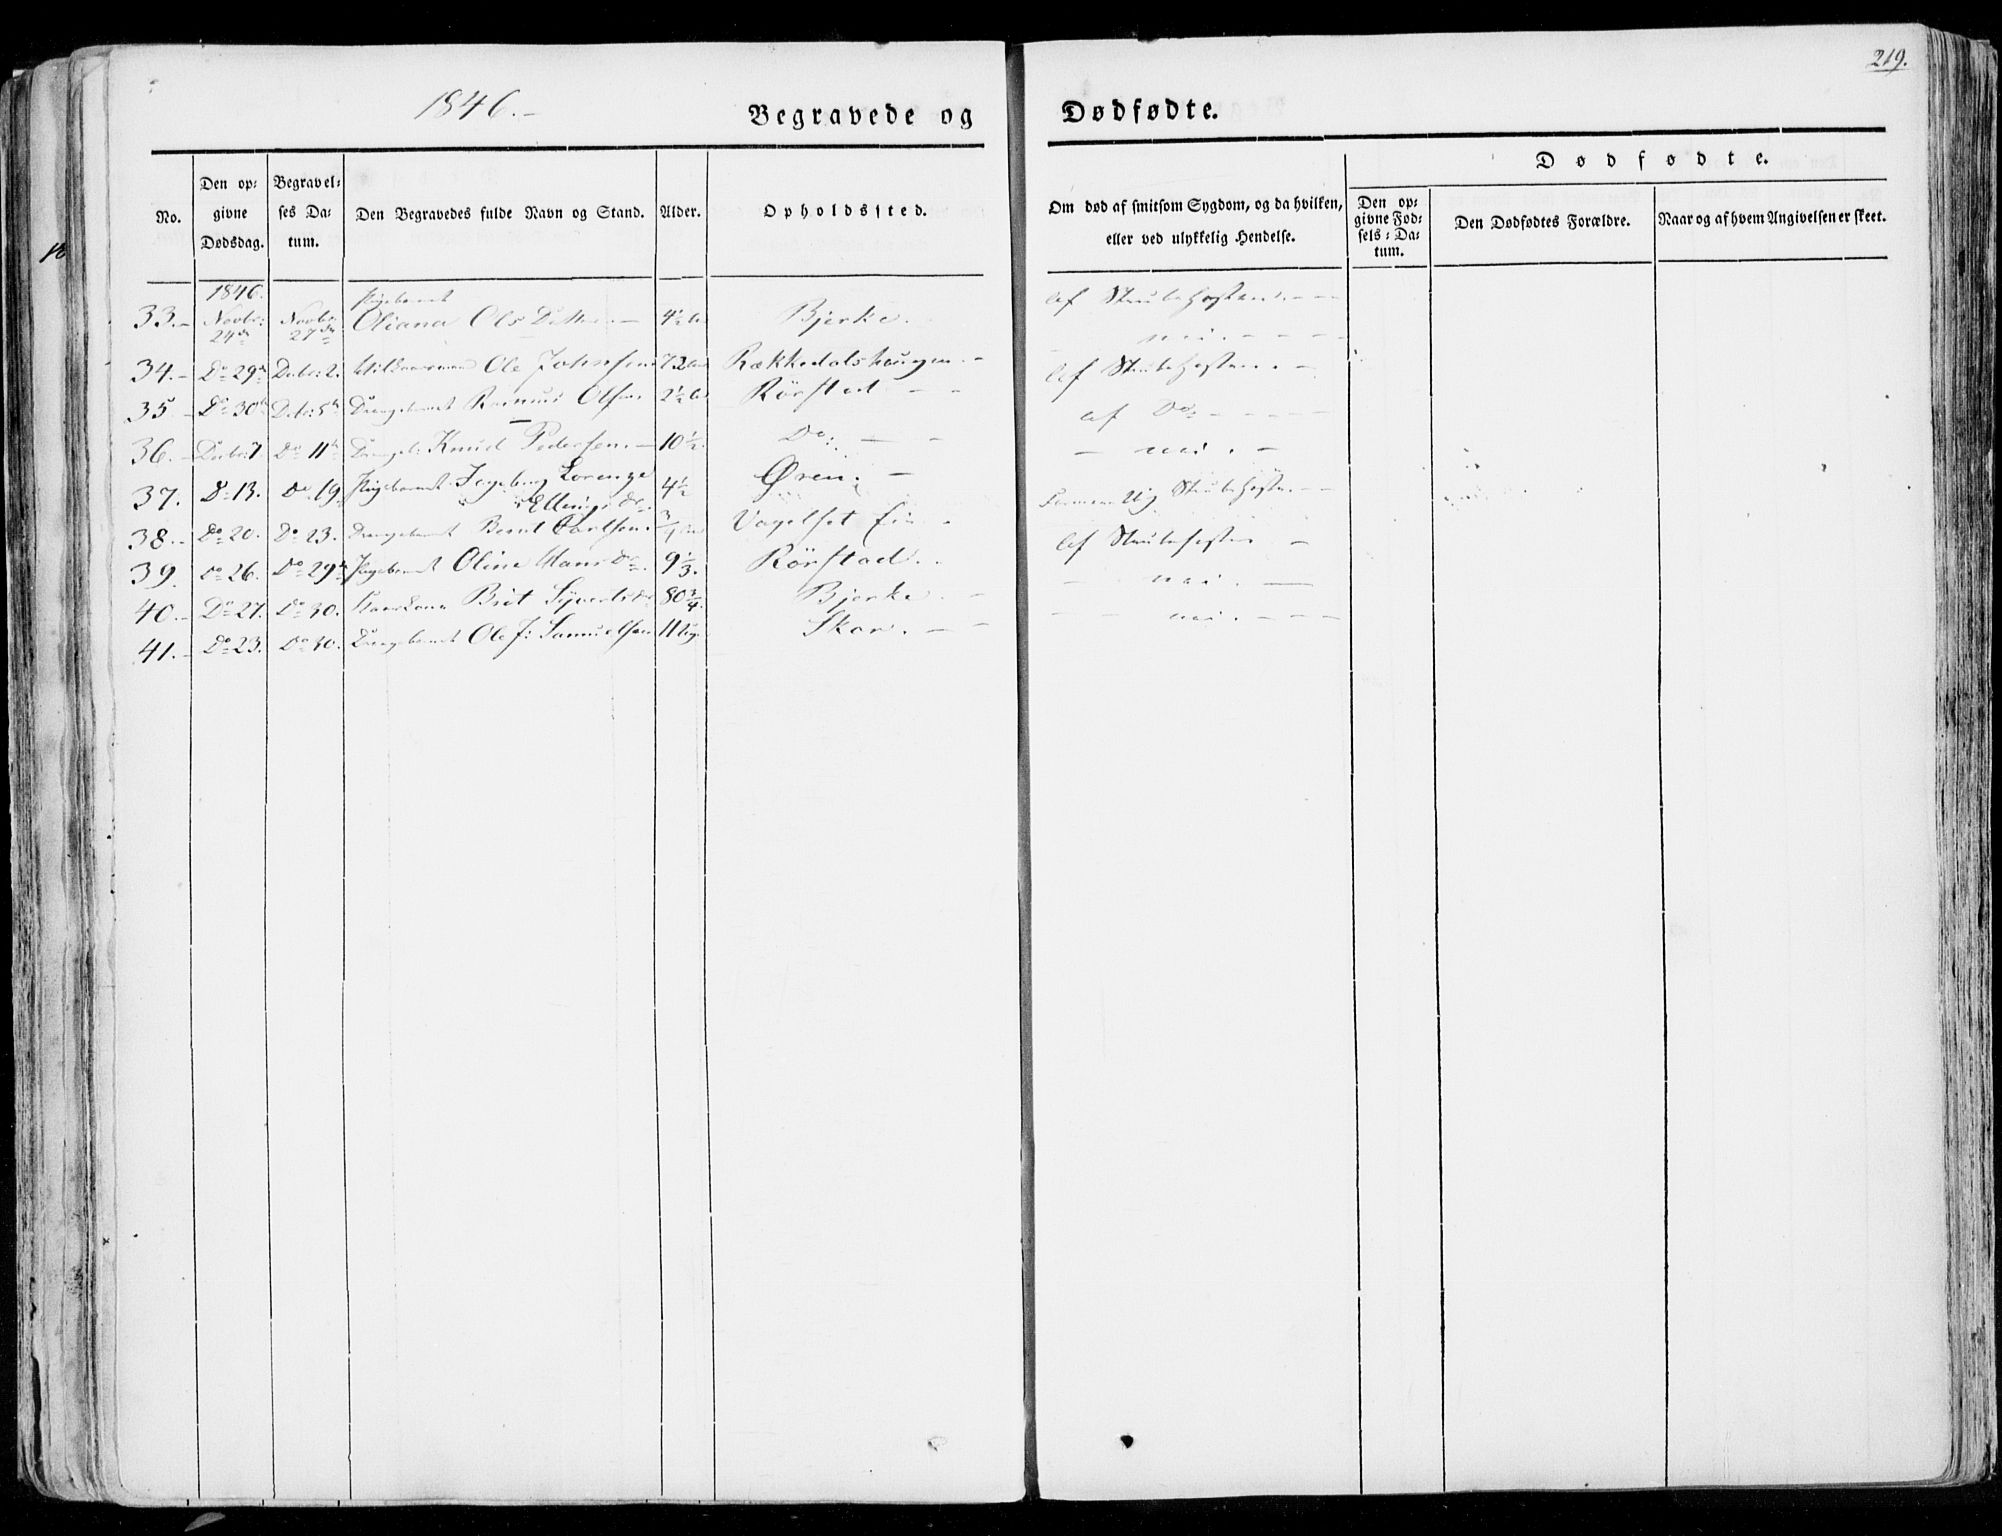 219.
1846.-
Begravede og Dødfødte.
No.
Den opgivne Dødsdag.
Begravelses Datum.
Den Begravedes fulde Navn og Stand.
Alder.
Opholdssted.
Om død af smitsom Sygdom, og da hvilken, eller ved ulykkelig Hendelse.
Dødfødte.
Den opgivne Fødsels-Datum.
Den Dødfødtes Forældre.
Naar og af hvem Angivelsen er skeet.
1846.
33.- Novbr: 24de Novbr: 27de Pigebarnet Oliana Ols Datter.- 4½ Bjerke. af Strubehosten. - - -
34.- Do 29de Decbr: 2. Ole Johnsen 72 Rækkedalshaugen. - - nei. - - - -
35.- Do 30te Decbr: 5te Drengebarnet Rasmus Olsen 2½ Rörstad - - af Strubehosten. - -
36.- Decbr: 7 Do 11te Drengeb: Knud Pedersen.- 10½. Do: - - af Do: - - - - -
37. Do 13. Do 19. Pigebarnet Ingeborg Lorenze Ellings Dr. 4½ Øren. - - nei. -
38.- Do 20. Do 23. Drengebarnet Bernt Carlsen. Strubehosten. - -
39. Do 26. Do 29de Pigebarnet Oline Hans Dr. 9⅓. Rörstad. - af Strubehosten -
40.- Do 27. Do 30. Brit Syverts Dr 80¾. Bjerke. - - nei. -
41.- Do 23. Do 30. Drengebarnet Ole J: Samuelsen 11 Ug. Skar. - - - - nei. - - -